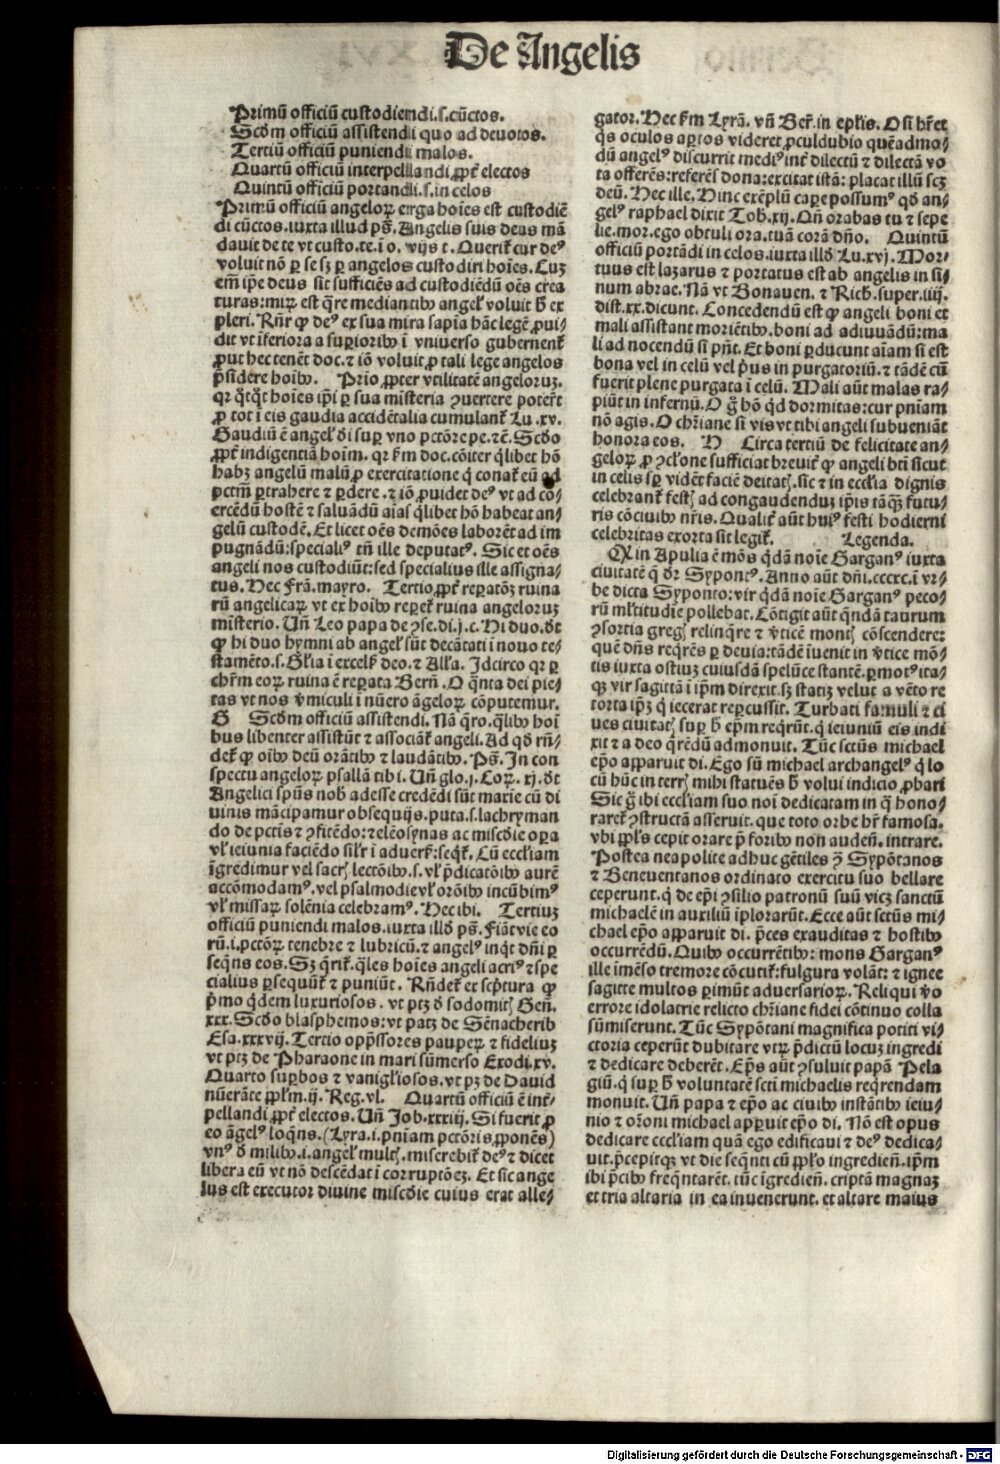 De Angelis
Primū officiū custodiendi.s.cūctos.
Scd̄m officiū assistendi quo ad deuotos.
Tertiū officiū puniendi malos.
Quartū officiū interpellandi ꝓpt̄ electos
Quintū officiū portandi.s.in celos
Primū officiū angeloꝝ erga hoīes est custodiē
di cūctos.iuxta illud ps̄. Angelis suis deus mā
dauit de te vt custo.te.ī o. vijs t. Querit᷑ cur deꝰ
voluit nō ꝑ se sꝫ ꝑ angelos custodiri hoīes. Cuꝫ
em̄ ip̄e deus sit sufficiēs ad custodiēdū oēs crea
turas: miꝝ est q̄re mediantibꝰ angel̕ voluit h̄ ex
pleri. Rn̄r ꝙ deꝰ ex sua mira sapīa hāc legē ꝓui⸗
dit vt īferiora a suꝑioribꝰ ī vniuerso gubernent᷑
ꝓut hec tenēt doc. ⁊ iō voluit ꝓ tali lege angelos
p̄sidere hoībꝰ. Prīo ꝓpter vtilitatē angeloruꝫ.
qr q̄tq̄t hoīes ip̄i ꝑ sua misteria ꝯuertere poter̄t
ꝓ tot ī eis gaudia accidētalia cumulant᷑ Lu.xv.
Gaudiū ē angel̕ dī suꝑ vno pctōre pe.⁊c̄. Scd̄o
ꝓpt̄ indigentiā hoīm. qr fm doc.cōiter q̄libet hō
habꝫ angelū malū ꝓ exercitatione q̄ conat᷑ eū ad
pctm̄ ꝑtrahere ⁊ ꝑdere.⁊ iō ꝓuidet deꝰ vt ad co⸗
ercēdū hostē ⁊ saluādū aīas q̄libet hō habeat an⸗
gelū custodē. Et licet oēs demōes laborēt ad im
pugnādū: specialiꝰ tn̄ ille deputatꝰ. Sic et oēs
angeli nos custodiūt: sed specialius ille assigna⸗
tus. Hec Frā.mayro. Tertio ꝓpt̄ reꝑatōꝫ ruina
rū angelicaꝝ vt ex hoībꝰ reꝑet᷑ ruina angeloruꝫ
mīsterio. Vn̄ Leo papa de ꝯse.di.j.c. Hi duo.dt̄
ꝙ hi duo hymni ab angel̕ sūt decātati ī nouo te⸗
stamēto.s. Gl̄ia ī excels̕ deo.⁊ All̄a. Idcirco qr ꝑ
chr̄m eoꝝ ruina ē reꝑata Bern̄. O q̄nta dei pie⸗
tas vt nos v̄miculi ī nūero āgeloꝝ cōputemur.
G Scd̄m officiū assistendi. Nā q̄ro.q̄libꝰ hoī
bus libenter assistūt ⁊ associāt᷑ angeli. Ad qd̄ rn̄⸗
det᷑ ꝙ oībꝰ deū orātibꝰ ⁊ laudātibꝰ. Ps̄. In con
spectu angeloꝝ psallā tibi. Vn̄ glo.j.Coꝝ.xj.dt̄
Angelici sp̄us nob̄ adesse credēdi sūt marie cū di
uinis mācipamur obsequijs.puta.s.lachryman
do de pctīs ⁊ ꝯfitēdo: ⁊ elēosynas ac miscd̄ie oꝑa
vl̕ ieiunia faciēdo sil̕r ī aduers̄: seq̄t᷑. Cū eccl̄iam
īgredimur vel sacr̄ lectōibꝰ.s.vl̕ p̄dicatōibꝰ aurē
accōmodamꝰ.vel psalmodie vl̕ orōibꝰ incūbimꝰ
vl̕ missaꝝ solēnia celebramꝰ. Hec ibi. Tertiuꝫ
officiū puniendi malos.iuxta illd̄ ps̄. Fiāt vie eo
rū.i.pctōꝝ tenebre ⁊ lubricū.⁊ angelꝰ inq̄t dn̄i ꝑ
seq̄ns eos. Sꝫ q̄rit᷑. q̄les hoīes angeli acriꝰ ⁊ spe
cialius ꝑsequūt᷑ ⁊ puniūt. Rn̄det᷑ ex scp̄tura ꝙ
p̄mo q̄dem luxuriosos. vt ptꝫ d̄ sodomit̄ Gen̄.
xxx. Scd̄o blasphemos: vt patꝫ de Sēnacherib
Esa.xxxvij. Tertio opp̄ssores pauꝑeꝝ ⁊ fideliuꝫ
vt ptꝫ de Pharaone in mari sūmerso Exodi.xv.
Quarto suꝑbos ⁊ vanigl̄iosos. vt pꝫ de David
nūerāte ppl̄m.ij. Reg.vl̕. Quartū officiū ē int̄⸗
pellandi ꝓpt̄ electos. Vn̄ Job.xxxiij. Si fuerit ꝓ
eo āgelꝰ loq̄ns.(Lyra.i.pniam pctōris ꝓponēs)
vnꝰ d̄ milibꝰ.i.angel̕ mult̄.miserebit᷑ deꝰ ⁊ dicet
libera eū vt nō descēdat ī corruptōeꝫ. Et sic ange
lus est executor diuine miscd̄ie cuius erat alle⸗
gator. Hec fm Lyrā. vn̄ Ber̄.in epl̄is. O si hr̄et
q̄s oculos aꝑtos videret ꝓculdubio quēadmo⸗
dū angelꝰ discurrit mediꝰ int̄ dilectū ⁊ dilectā vo
ta offerēs: referēs dona: excitat istā: placat illū scꝫ
deū. Hec ille. Hinc exēplū caꝑe possumꝰ qd̄ an⸗
gelꝰ raphael dixit Tob.xij. Qn̄ orabas tu ⁊ sepe
lie.mor.ego obtuli ora.tuā corā dn̄o. Quintū
officiū portādi in celos.iuxta illd̄ Lu.xvj. Mor⸗
tuus est lazarus ⁊ portatus est ab angelis in si⸗
num abrae. Nā vt Bonauen. ⁊ Rich.super.iiij.
dist.xx.dicunt. Concedendū est ꝙ angeli boni et
mali assistant moriētibꝰ.boni ad adiuuādū: ma
li ad nocendū si pn̄t. Et boni ꝑducunt aīam si est
bona vel in celū vel p̄us in purgatoriū.⁊ tādē cū
fuerit plene purgata ī celū. Mali aūt malas ra⸗
piūt in infernū. O ḡ hō qd̄ dormitas: cur pniam
nō agis. O chr̄iane si vis vt tibi angeli subueniāt
honora eos. H Circa tertiū de felicitate an⸗
geloꝝ ꝓ ꝯcl̄one sufficiat breuit̄ ꝙ angeli bt̄i sicut
in celis sꝑ vidēt faciē deitat̄.sic ⁊ in eccl̄ia dignis
celebrant᷑ fest̄ ad congaudenduꝫ ip̄is tāq̄ꝫ futu⸗
ris cōciuibꝰ nr̄is. Qualit̄ aūt huiꝰ festi hodierni
celebritas exorta sit legit᷑. Legenda.
in Apulia ē mōs q̄dā noīe Garganꝰ iuxta
ciuitatē q̄ dr̄ Syponꝰ. Anno aūt dn̄i.cccxc.ī vr⸗
be dicta Syponto: vir q̄dā noīe Garganꝰ peco⸗
rū ml̄titudīe pollebat. Cōtigit aūt q̄ndā taurum
ꝯsortia greḡ relinq̄re ⁊ v̄ticē mont̄ cōscendere:
quē dn̄s reqrēs ꝑ deuia: tādē īuenit in v̄tice mō⸗
tis iuxta ostiuꝫ cuiusdā spelūce stantē.ꝑmotꝰ ita⸗
qꝫ vir sagittā ī ip̄m direxit.sꝫ statiꝫ velut a vēto re
torta ip̄ꝫ q̄ iecerat reꝑcussit. Turbati famuli ⁊ ci
ues ciuitat̄ suꝑ h̄ ep̄m reqr̄unt.q̄ ieiuniū eis indi
xit ⁊ a deo q̄rēdū admonuit. Tūc sctūs michael
ep̄o apparuit di. Ego sū michael archangelꝰ q̄ lo
cū hūc in terr̄ mihi statuēs h̄ volui indicio ꝓbari
Sic ḡ ibi eccl̄iam suo noī dedicatam in q̄ hono⸗
raret᷑ ꝯstructā asseruit. que toto orbe hr̄ famosa.
vbi ppl̄s cepit orare p̄ foribꝰ non auden̄.intrare.
Postea neapolite adhuc gētiles ꝯ̄ Sypōtanos
⁊ Beneuentanos ordinato exercitu suo bellare
ceperunt.q̄ de ep̄i ꝯsilio patronū suū vicꝫ sanctū
michaelē in auxiliū īplorarūt. Ecce aūt sctūs mi⸗
chael ep̄o apparuit di. p̄ces exauditas ⁊ hostibꝰ
occurrēdū. Quibꝰ occurrētibꝰ: mons Garganꝰ
ille imēso tremore cōcutit᷑: fulgura volāt: ⁊ ignee
sagitte multos ꝑimūt aduersarioꝝ. Reliqui v̄o
errore idolatrie relicto chr̄iane fidei cōtinuo colla
sūmiserunt. Tūc Sypōtani magnifica potiti vi⸗
ctoria ceperūt dubitare vtꝝ p̄dictū locuꝫ ingredi
⁊ dedicare deberēt. Ep̄s aūt ꝯsuluit papā Pela
giū.q̄ suꝑ h̄ voluntatē scti michaelis req̄rendam
monuit. Vn̄ papa ⁊ ep̄o ac ciuibꝰ instātibꝰ ieiu⸗
nio ⁊ or̄oni michael apꝑuit ep̄o di. Nō est opus
dedicare eccl̄iam quā ego edificaui ⁊ deꝰ dedica⸗
uit.p̄cepitqꝫ vt die seq̄nti cū ppl̄o ingredien̄.ip̄m
ibi p̄cibꝰ freq̄ntarēt. tūc īgredien̄. criptā magnaꝫ
et tria altaria in ea inuenerunt.et altare maius
Digitalisierung gefördert durch die Deutsche Forschungsgemeinschaft - DFG